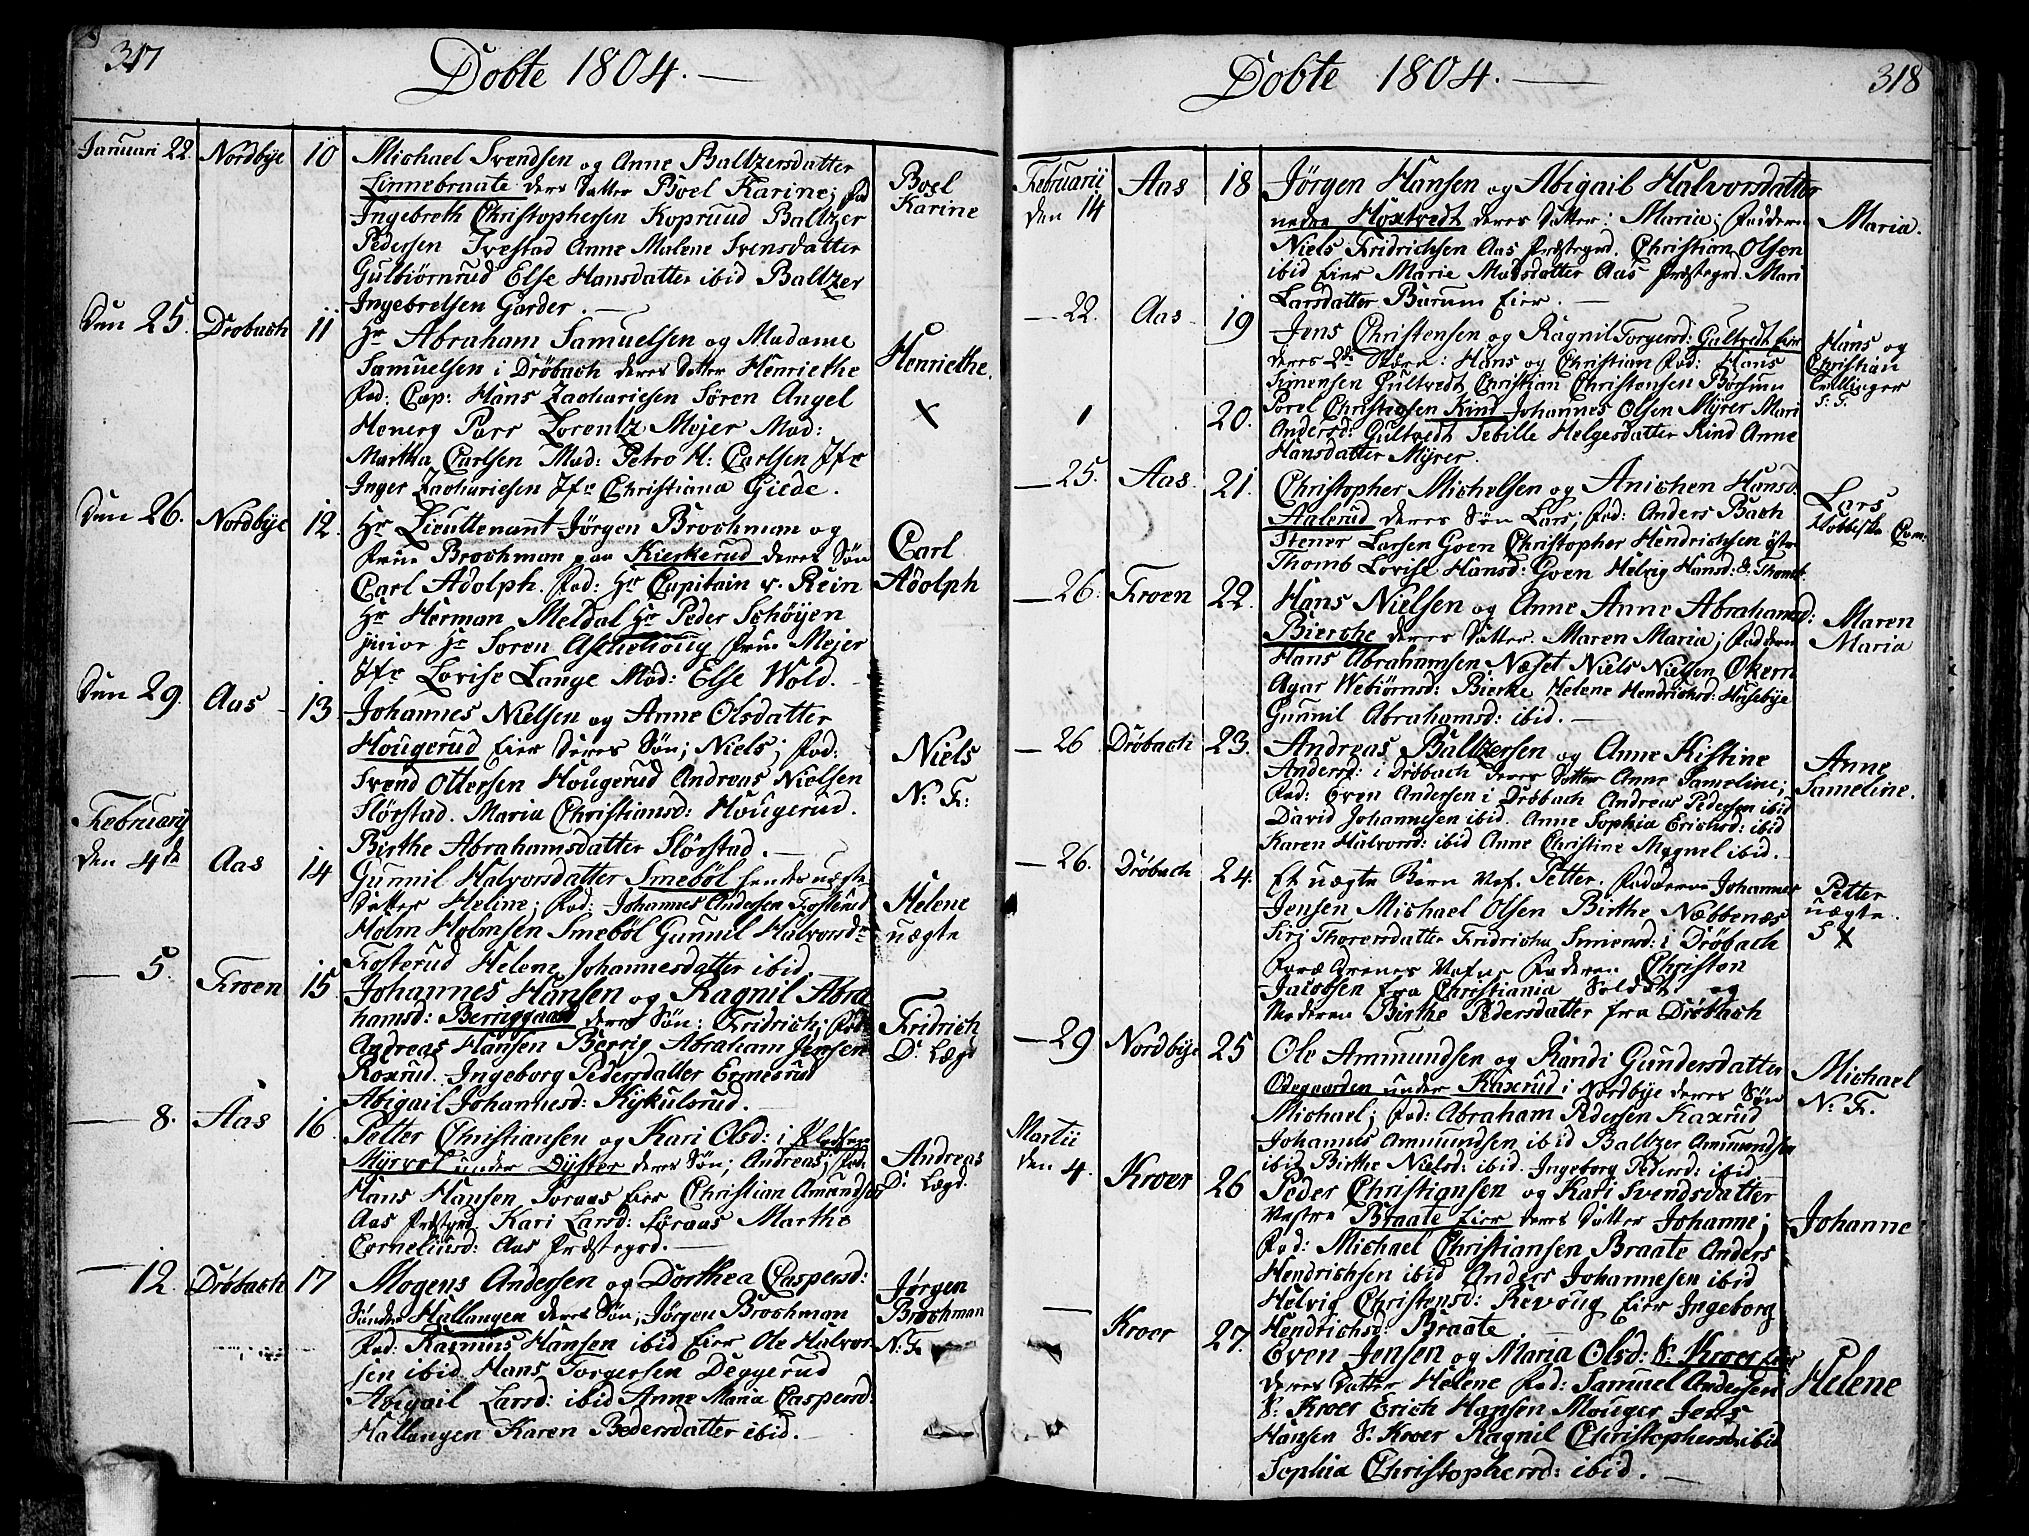 317
Dobte 1804.
Januari 22. Nordbye 10 Michael Svendsen og Anne Baltzersdatter
Linnebraate deres Datter Boel Karine; Fad
Boel
Karine
Ingebreth Christophersen Koprud Baltzer
Pedersen Ivestad Anne Malene Svensdatter
Gulbiørnrud Else Hansdatter ibid Baltzer
Ingebretsen Garder.
Den 25. Drobach 11 Hr Abraham Samuelsen og Madame
Samuelsen i Drøbach deres Datter Henriethe
Henriethe.
Fad: Cap: Hans Zachariesen Sören Angel
X
Henerg Parr Lorentz Mejer Mad:
Martha Carlsen Mad: Petro H: Carlsen Jfr
Inger Zachariesen Jfr Christiana Giede.
Den 26. Nordbye 12. Hr Lieuttenant Jörgen Brochman og
Frue Brochman paa Kierkerud deres Søn
Carl
Adolph
Carl Adolph. Fad: Hr Capitain v. Rein
Hr Herman Meldal Hr Peder Schöyen
junior Hr Soren Aschehoug Frue Mejer
Jfr Lovise Lange Mad: Else Wold.
Den 29. Aas 13 Johannes Nielsen og Anne Olsdatter
Hougerud Eier deres Søn; Niels; Fad:
Niels
N: F:
Svend Ottersen Hougerud Andreas Nielsen
Slörstad. Maria Christiansd: Hougerud.
Birthe Abrahamsdatter Slörstad.
February
den 4de Aas 14 Gunnil Halvorsdatter Smeböl hendes uægte
Datter Heline; Fad: Johannes Andersen Fosterud
Helene
uægte
Holm Holmsen Smeböl Gunnil Halvorsdr
Fosterud Helene Johannesdatter ibid
5. Kroen 15 Johannes Hansen og Ragnil Abra
hamsd: Berriggaard deres Søn: Fridrich; Fad:
Fridrich
D: Lægd
Andreas Hansen Berrig Abraham Jensen
Roxrud. Ingeborg Pedersdatter Ermesrud
Abigail Johannesd: Kykulsrud.
8. Aas 16. Petter Christiansen og Kari Olsd: i
Myrvol under Dyster deres Søn; Andreas; Fad:
Andreas
D: Lægd.
Hans Hansen Soraas Eier Christian Amundsen
Aas Præstegrd. Kari Larsd: Søraas Marthe
Corneliusd: Aas Præstegrd.
12. Dröbach 17 Mogens Andersen og Dorthea Caspersd:
Sönder Hallangen deres Søn; Jörgen Brochman
Jørgen
Brochman
N: F:
Fad: Rasmus Hansen ibid Eier Ole Halvor
sen ibid Hans Torgersen Deggerud
Abigail Larsd: ibid Anne Maria Caspersd:
Hallangen Karen Pedersdatter ibid.
318
Dobte 1804.
Februarii
den 14 Aas 18 Jörgen Hansen og Abigail Halvorsdatter
nedre Hoxtvedt deres Datter: Maria; Faddere
Maria.
Niels Fridrichsen Aas Præstegrd. Christian Olsen
ibid Eier Marie Madsdatter Aas Præstegrd. Mari
Larsdatter Burum Eier.
22. Aas 19 Jens Christensen og Ragnil Torgersd: Gultvedt Eier
deres 2de Sønner: Hans og Christian Fad: Hans
Hans og
Christian
Tvillinger
S: F:
Simensen Gultvedt Christian Christensen Börsum
20. Porel Christensen Kind Johannes Olsen Myrer Mari
Andersd: Gultvedt Sebille Helgesdatter Kind Anne
Hansdatter Myrer.
25. Aas 21. Christopher Michelsen og Anichen Hansd:
Aalerud deres Søn Lars; Fad: Anders Bach
Lars
Stener Larsen Goen Christopher Hendrichsen
Thomb Lovise Hansd: Goen Helvig Hansd:
26. Kroen 22. Hans Nielsen og Anne Anne Abrahamsd:
Bierche deres Datter. Maren Maria; Faddere
Maren
Maria
Hans Abrahamsen Næset Niels Nielsen Økern
Agar Webiørnsd: Bierke Helene Hendrichsd: Husebye
Gunnil Abrahamsd: ibid.
26 Dröbach 23. Andreas Baltzersen og Anne Kistine
Andersd: i Dröbach deres Datter Anne Sameline;
Anne
Sameline.
Fad: Even Andersen i Dröbach Andreas Pedersen ibid
David Johannesen ibid. Anne Sophia Erichsd: ibid
Karen Halvorsd: ibid Anne Christine Magnel ibid.
26. Dröbach 24. Et uægte Barn Nafn. Petter. Faddere Johannes
Jensen Michael Olsen Birthe Næbbenæs
Petter
uægte.
Siri Thoresdatter Fridricha Simensd: i Dröbach
Forældrenes Nafne Faderen Christen
Jacobsen fra Christiania Soldat og
Moderen Birthe Pedersdatter fra Dröbach
29 Nordbye 25 Ole Ammundsen og Randi Gundersdatter
Odegaarden under Kaxrud i Nordbye deres Søn
Michael
N: F.
Michael; Fad: Abraham Pedersen Kaxrud
Johannes Ammundsen ibid Baltzer Ammundsen
ibid Birthe Nielsd: ibid. Ingeborg Pedersd: ibid
Martii
den 4. Kroer 26 Peder Christiansen og Kari Svendsdatter
Vestre Braate Eier deres Datter Johanne;
Johanne
Fad: Michael Christiansen Braate Anders
Hendrichsen ibid Anders Johannesen ibid
Helvig Christensd: Revoug Eier Ingeborg
Hendrichsd: Braate
Kroer 27. Even Jensen og Maria Olsd: S: Kroer Eier
deres Datter Helene Fad: Samuel Andersen
Helene
S: Kroer Erich Hansen Mouger Jens
Hansen S: Kroer Ragnil Christophersd: ibid
Sophia Christophersd: ibid.